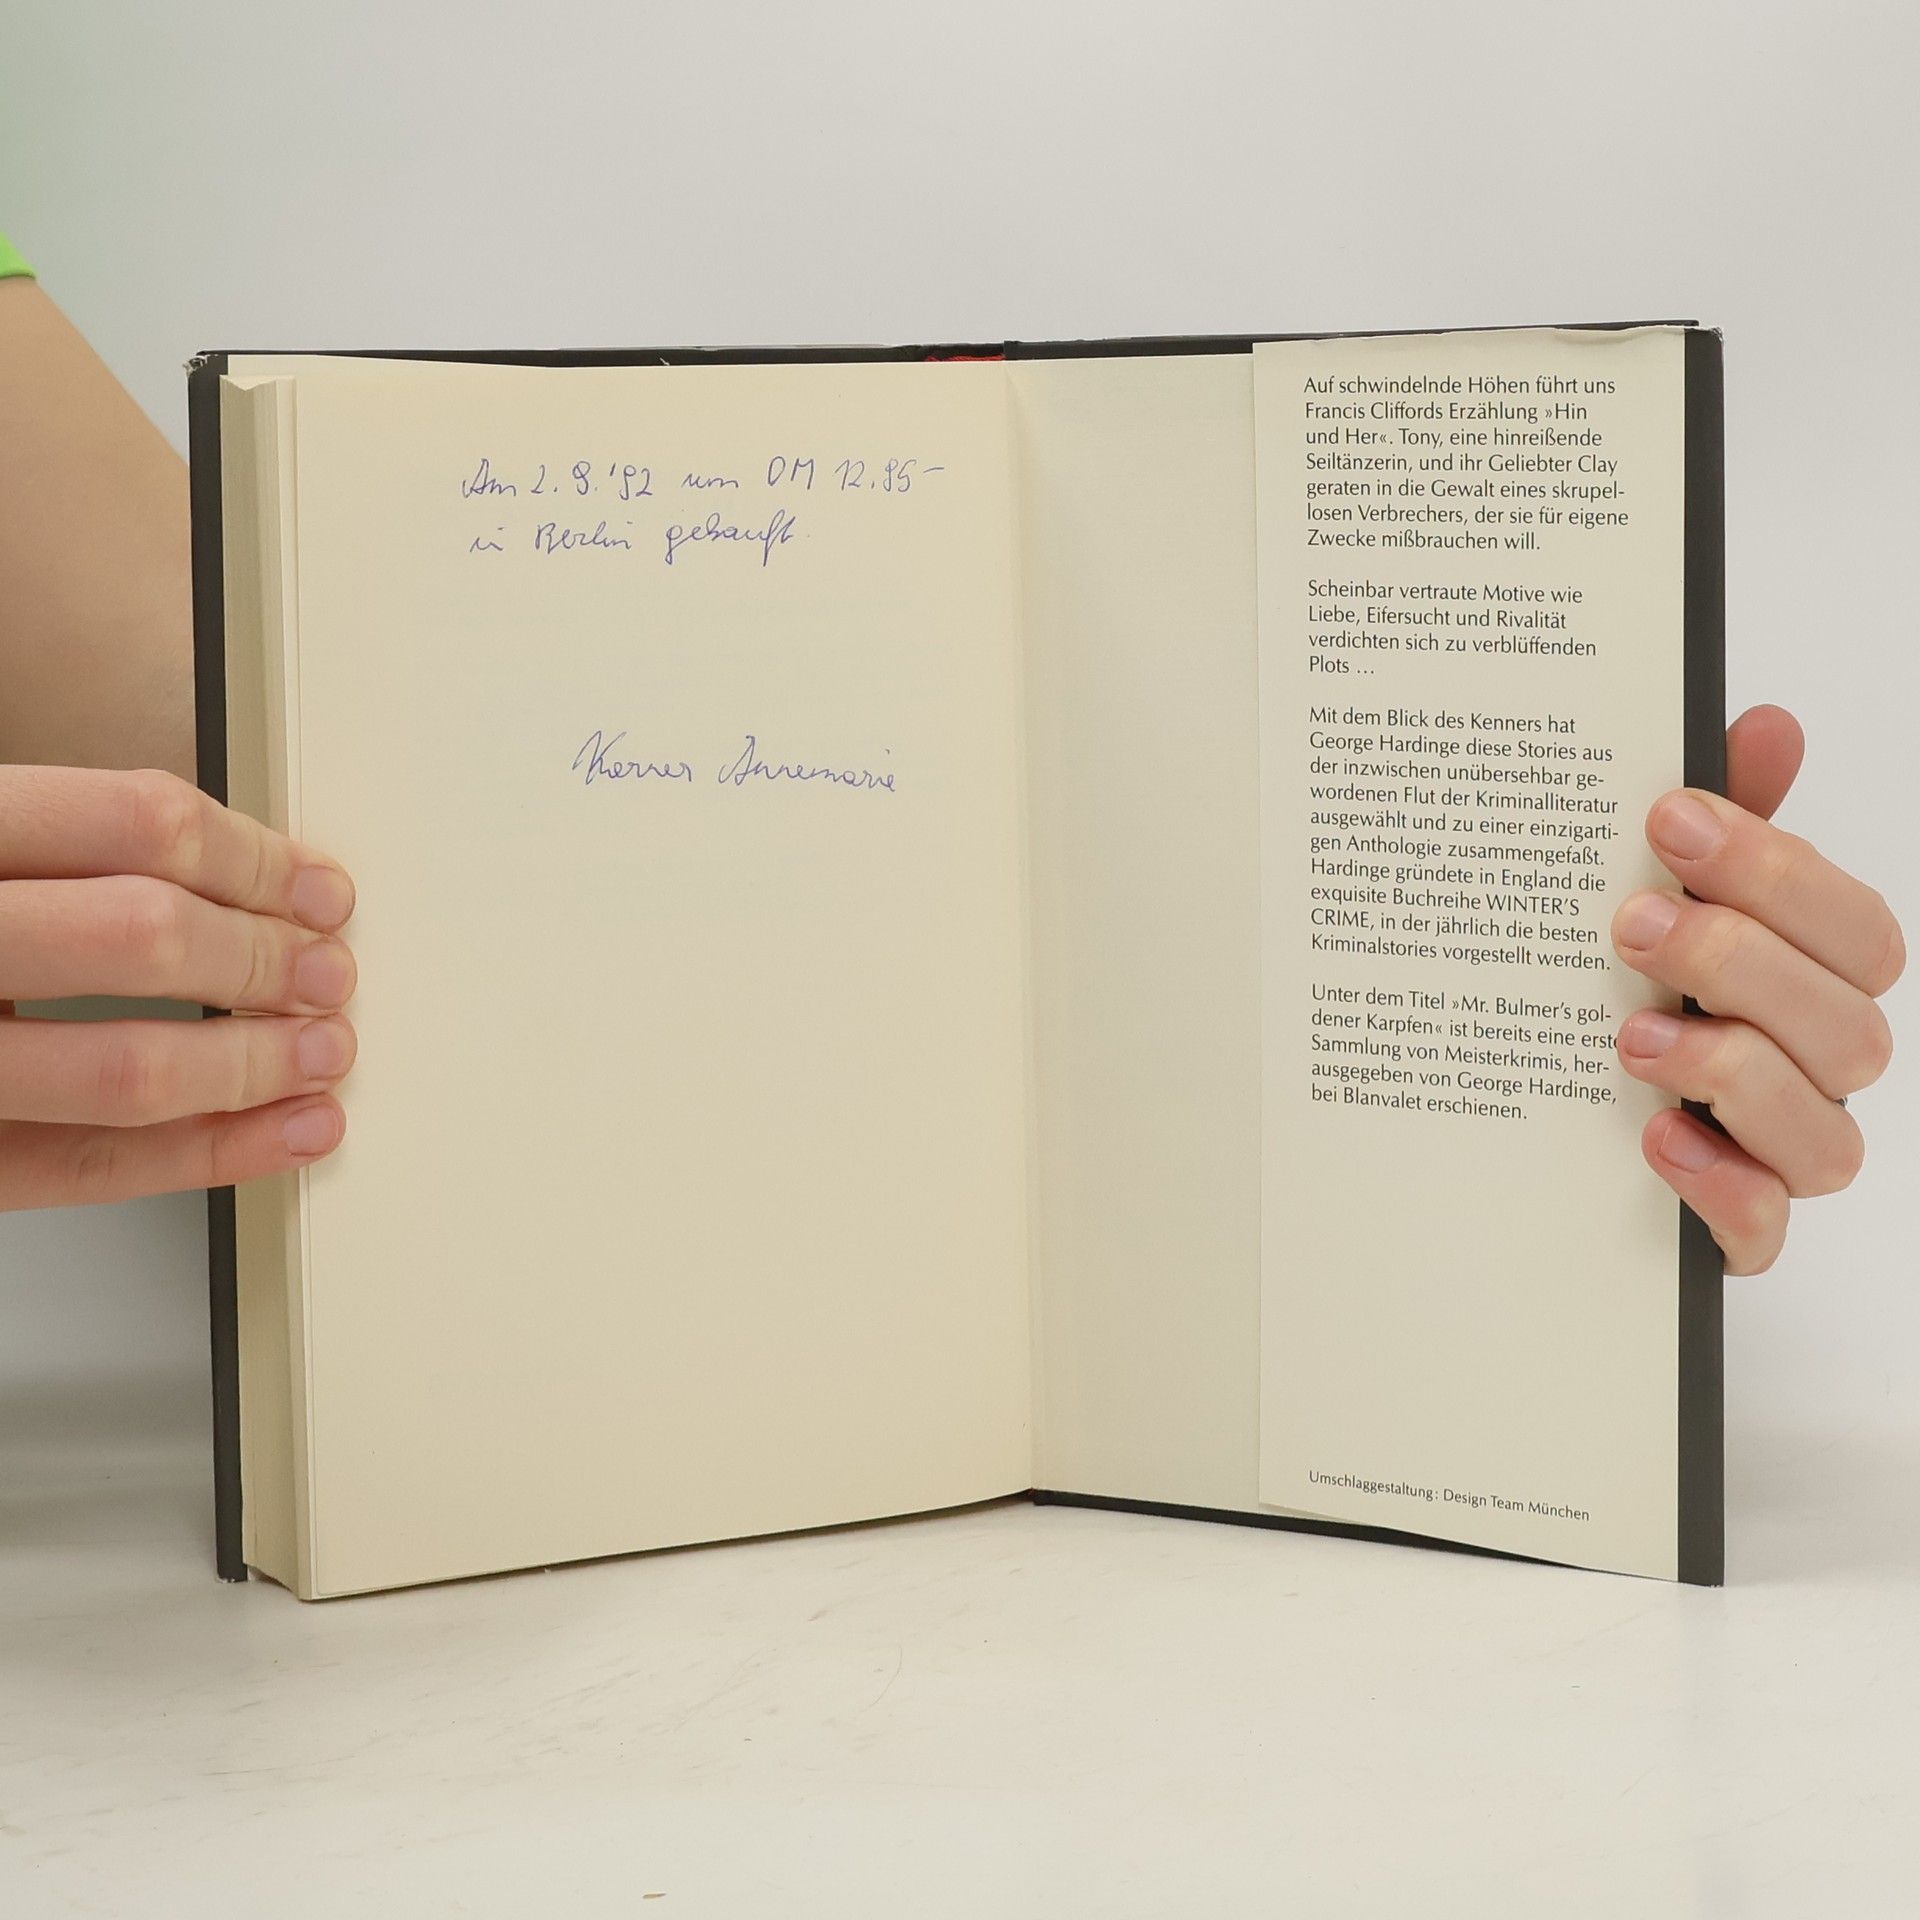 Am 2. 9. '92 um DM 12.95-
in Berlin gekauft.
Kerner Annemarie
Auf schwindelnde Höhen führt uns
Francis Cliffords Erzählung »Hin
und Her«. Tony, eine hinreißende
Seiltänzerin, und ihr Geliebter Clay
geraten in die Gewalt eines skrupel-
losen Verbrechers, der sie für eigene
Zwecke mißbrauchen will.
Scheinbar vertraute Motive wie
Liebe, Eifersucht und Rivalität
verdichten sich zu verblüffenden
Plots ...
Mit dem Blick des Kenners hat
George Hardinge diese Stories aus
der inzwischen unübersehbar ge-
wordenen Flut der Kriminalliteratur
ausgewählt und zu einer einzigarti-
gen Anthologie zusammengefaßt.
Hardinge gründete in England die
exquisite Buchreihe WINTER'S
CRIME, in der jährlich die besten
Kriminalstories vorgestellt werden.
Unter dem Titel »Mr. Bulmer's gol-
dener Karpfen« ist bereits eine erste
Sammlung von Meisterkrimis, her-
ausgegeben von George Hardinge,
bei Blanvalet erschienen.
Umschlaggestaltung: Design Team München